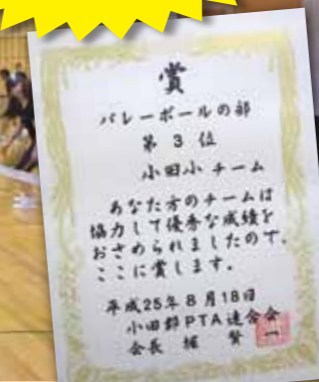 賞
バレーボールの部
第3位
小田小チーム
あなた方のチームは
協力して優秀な成績を
おさめられましたので、
ここに賞します。
平成25年8月18日
小田郡PTA連合会
会長 賢一